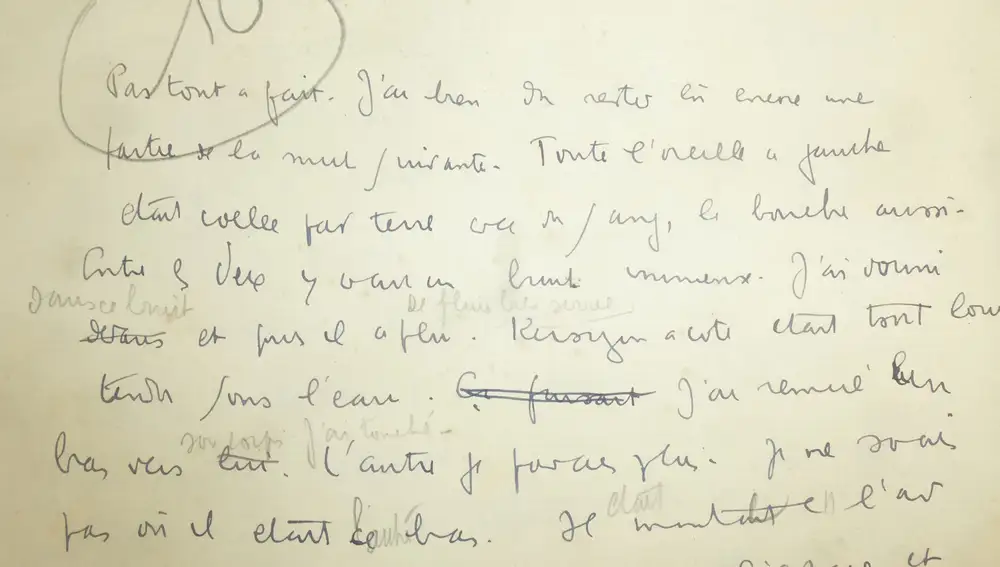 10
Pas tout a fait. J'ai bien du rester là encore une
partie de la nuit suivante. Toute l'oreille a gauche
etait collee par terre avec du sang, la bouche aussi.
Entre les deux y avait un bruit immense. J'ai dormi
dans ce bruit de pluie tres serree
dans et puis il a plu. Kersuzon a coté etait tout lour
tendu sous l'eau. Ca faisait J'ai remué un
son corps J'ai touché.
bras vers lui. L'autre je pouvais plus. Je ne savais
pas où il etait le bras. Il montait l'air
et